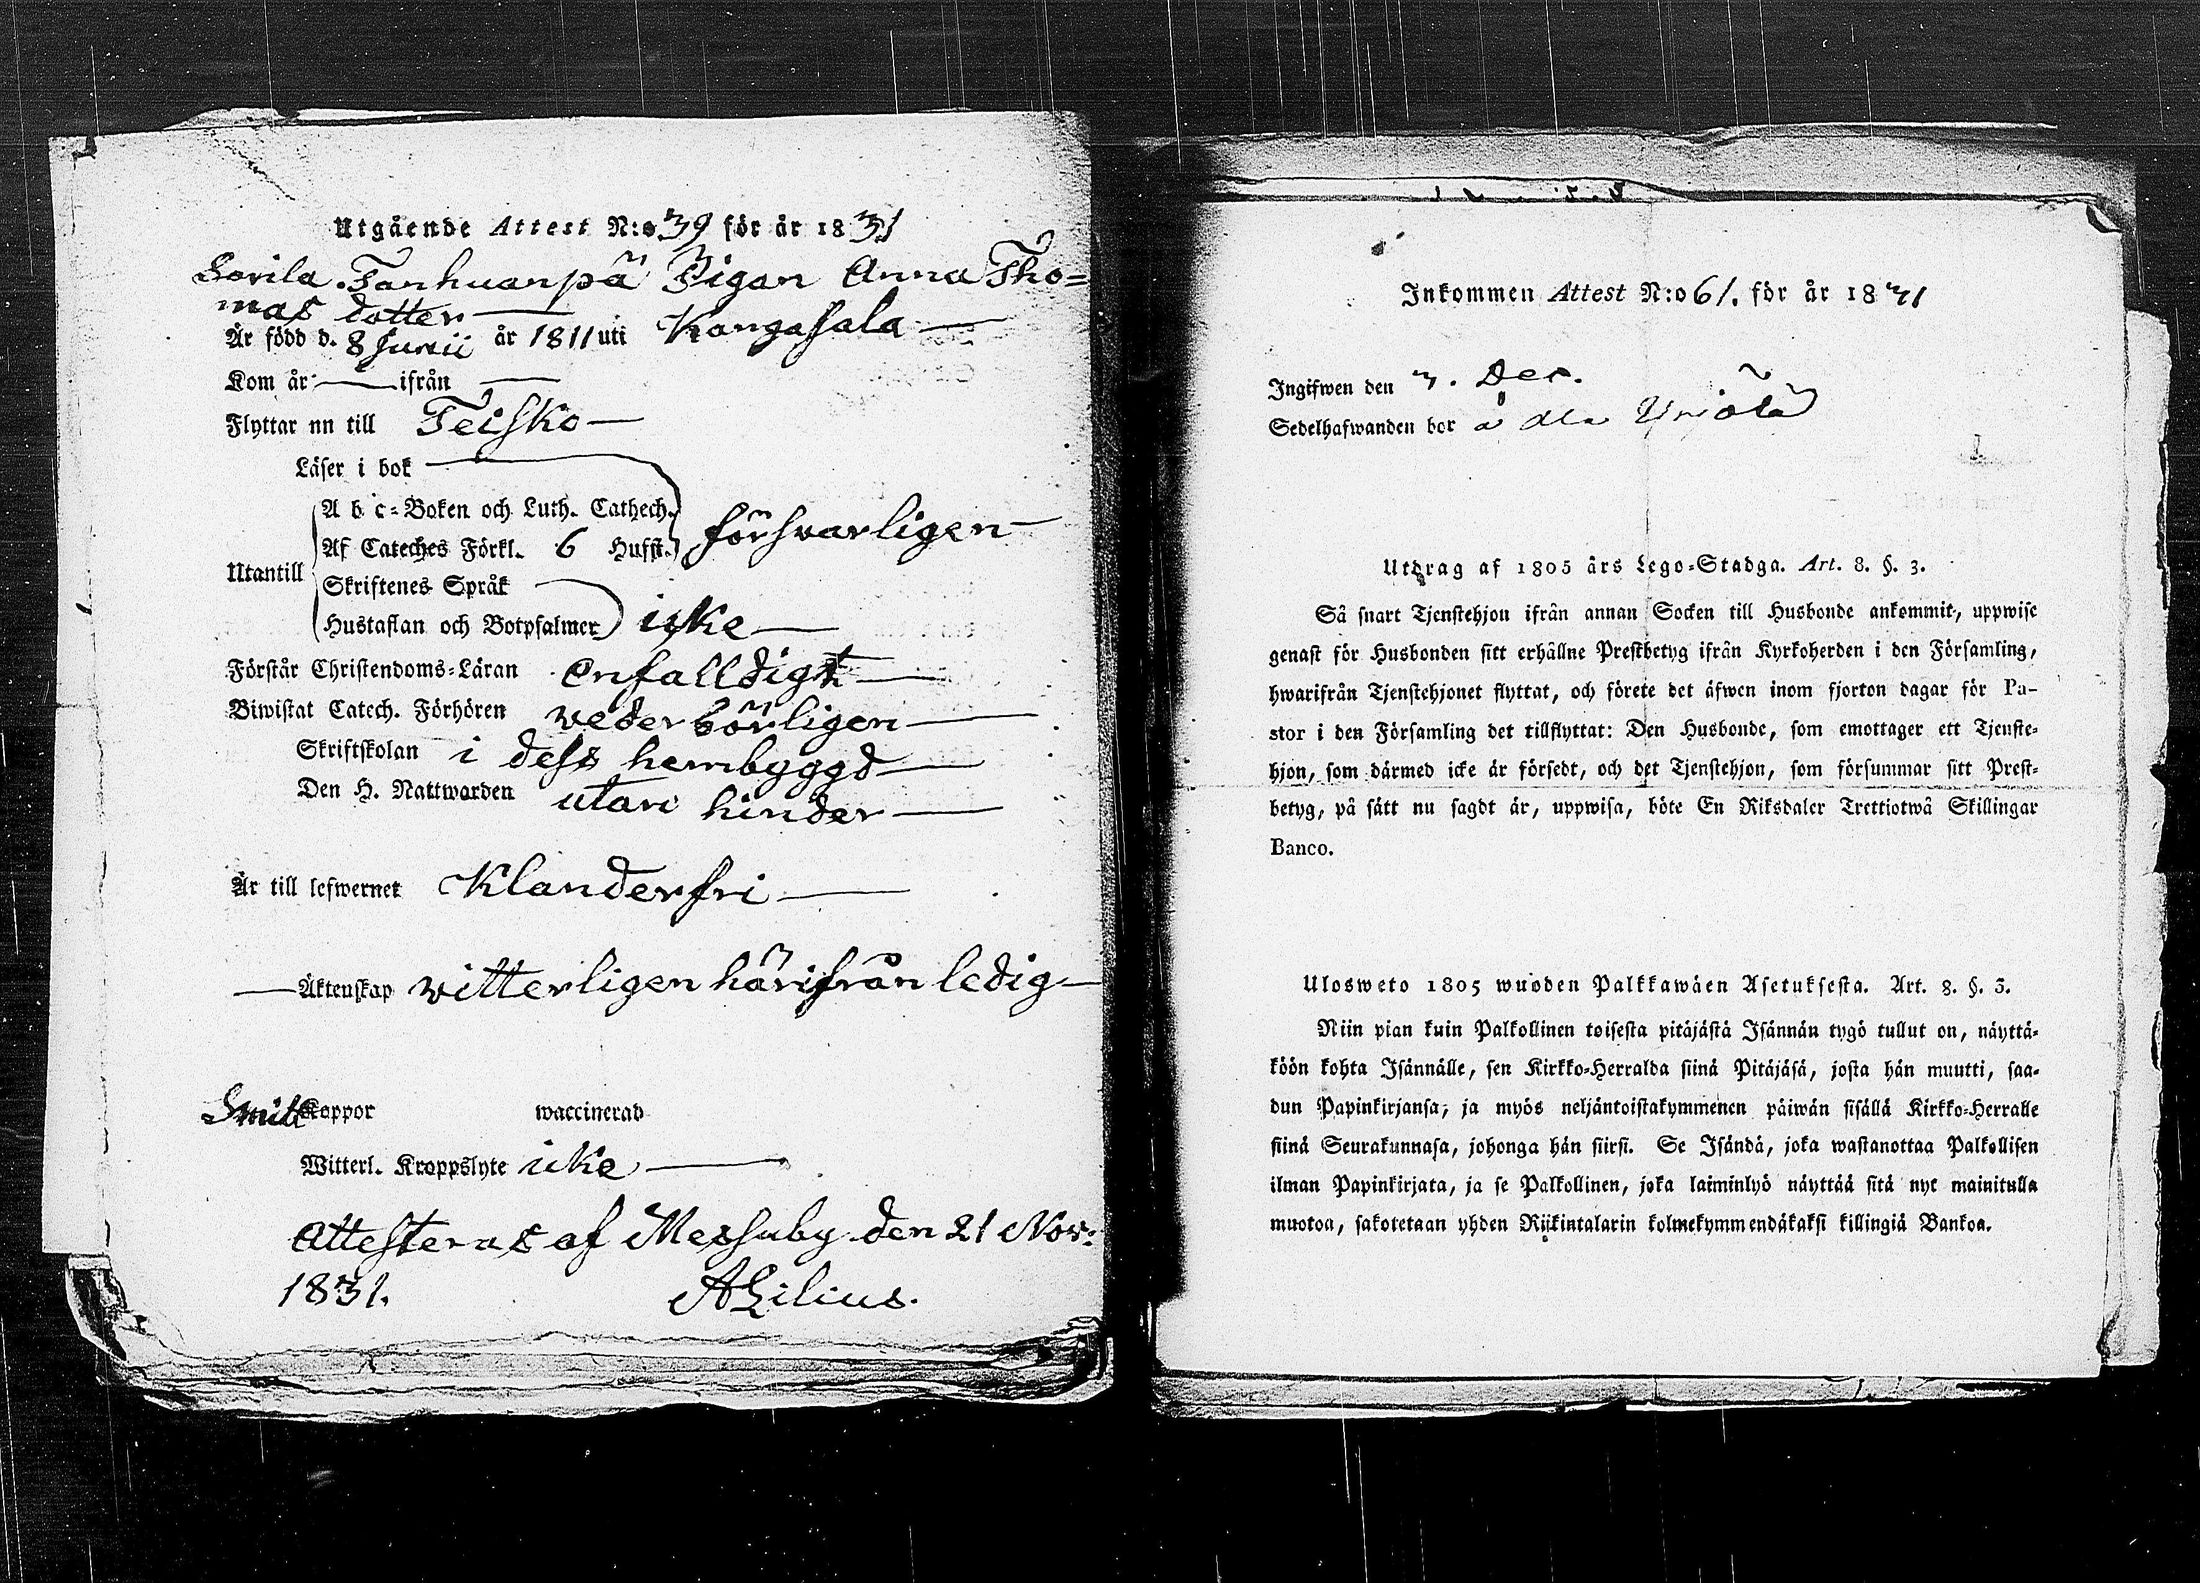 Utgående Attest N:o 39 för år 1831
Sorila Tanhuanpä Pigan Anna Tho=
mas dotter
Är född d. 8 Junii år 1811 uti Kangasala
Kom år ifrån
Flyttar nn till Teisko
Läser i bok
A b c=Boken och Luth. Cathech.
försvarligen
Af Cateches Förkl. 6 Hufst.
Utantill
Skriftenes Språk
Hustaflan och Botpsalmer icke
Förstår Christendoms=Läran enfalldigt
Biwistat Catech. Förhören vederbörligen
Skriftskolan i dess hembyggd
Den H. Nattwarden utan hinder
Är till lefwernet Klanderfri
Äktenskap witterligen härifrån ledig
Koppor waccinerad
Witterl. Kroppslyte icke
Attesteras af Messuby den 21 Nov:
1831. A Lilius.
Inkommen Attest N:o 61. för år 1831
Ingifwen den 3. Dec.
Sedelhafwanden bor å Ala Yriölä
Utdrag af 1805 års Lego=Stadga. Art. 8. §. 3.
Så snart Tjenstehjon ifrån annan Socken till Husbonde ankommit, uppwise
genast för Husbonden sitt erhållne Prestbetyg ifrån Kyrkoherden i den Församling,
hwarifrån Tjenstehjonet flyttat, och förete det äfwen inom fjorton dagar för Pa-
stor i den Församling det tillflyttat: Den Husbonde, som emottager ett Tjenste=
hjon, som därmed icke är försedt, och det Tjenstehjon, som försummar sitt Prest=
betyg, på sått nu sagdt är, uppwisa, böte En Riksdaler Trettiotwå Skillingar
Banco.
Ulosweto 1805 wuoden Palkkawäen Asetuksesta. Art. 8. §. 3.
Niin pian kuin Palkollinen toisesta pitäjästä Isännän tygö tullut on, näyttä=
köön kohta Isännälle, sen Kirkko=Herralda siinä Pitäjäsä, josta hän muutti, saa=
dun Papinkirjansa, ja myös neljäntoistakymmenen päiwän sisällä Kirkko=Herralle
siinä Seurakunnasa, johonga hän siirsi. Se Isändä, joka wastanottaa Palkollisen
ilman Papinkirjata, ja se Palkollinen, joka laiminlyö näyttää sitä nyt mainitulla
muotoa, sakotetaan yhden Riikintalarin kolmekymmendäkaksi killingiä Bankoa.